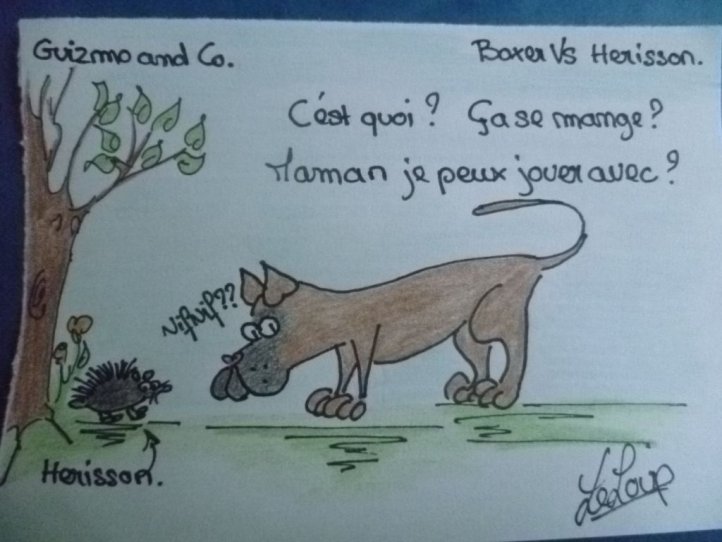 Guizmo and Co.
Boxer Vs Herisson.
C'est quoi? Ça se mange?
Maman je peux jouer avec?
Nifnif??
Herisson.
LeLoup